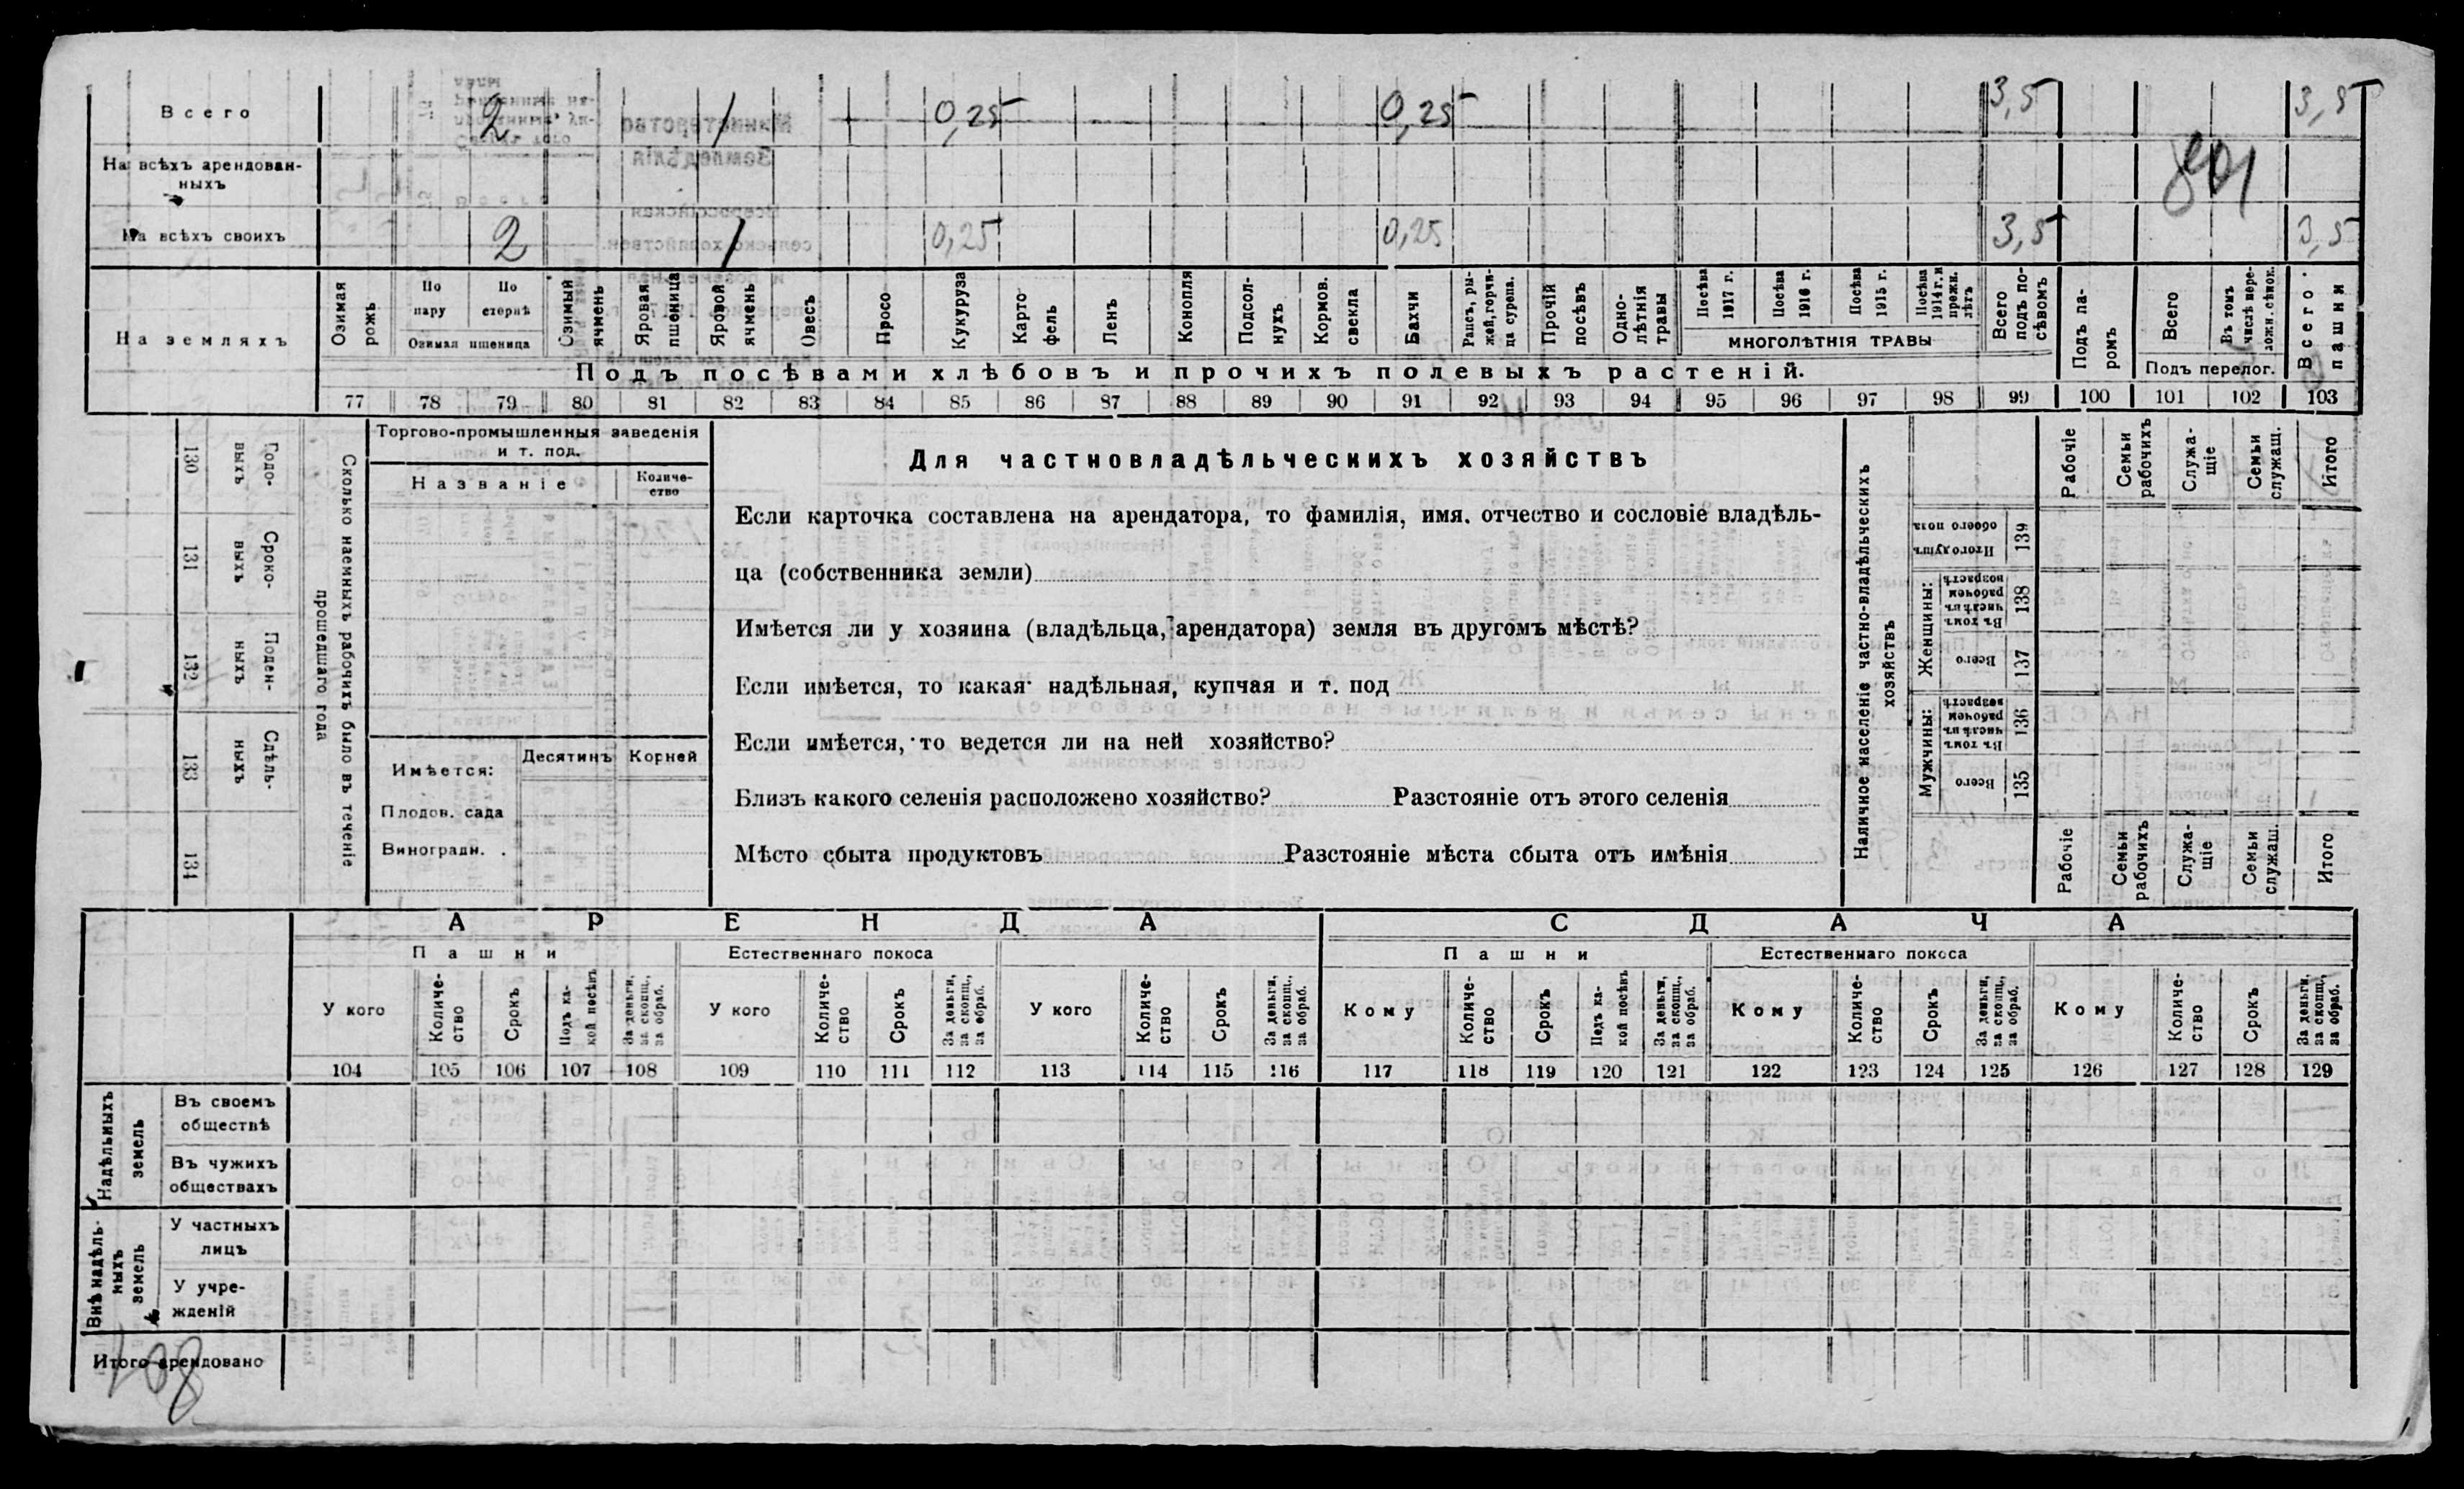 Всего 2 1 0,25 0,25 3,5 3,5
На всѣхъ арендован-
ныхъ
801
На всѣхъ своихъ 2 1 0,25 0,25 3,5 3,5
На земляхъ
Озимая рожь
По пару
По стернѣ
Озимая пшеница
Озимый ячмень
Яровая пшеница
Яровой ячмень
Овесъ
Просо
Кукуруза
Карто
фель
Ленъ
Конопля
Подсол-
нухъ
Кормов.
свекла
Бахчи
Рапсъ, ры-
жей, горчи-
ца сурепа.
Прочій
посѣвъ
Одно-
лѣтнія
травы
Посѣва
1917 г.
Посѣва
1916 г.
Посѣва
1915 г.
Посѣва
1914 г. и
прежн.
лѣтъ
МНОГОЛѢТНІЯ ТРАВЫ
Всего
подъ по-
сѣвомъ
Подъ па-
ромъ
Всего
Въ томъ
числѣ пере-
ложн. сѣнок.
Подъ перелог.
Всего
пашни
Подъ посѣвами хлѣбовъ и прочихъ полевыхъ растеній.
77 78 79 80 81 82 83 84 85 86 87 88 89 90 91 92 93 94 95 96 97 98 99 100 101 102 103
Сколько наемныхъ рабочихъ было въ теченіе
прошедшаго года
Годо-
выхъ
130
Сроко-
выхъ
131
Поден-
ныхъ
132
Сдѣль-
ныхъ
133
134
Торгово-промышленныя заведенія
и т. под.
Названіе
Количе-
ство
Имѣется:
Десятинъ Корней
Плодов. сада
Виноградн.
Для частновладѣльческихъ хозяйствъ
Если карточка составлена на арендатора, то фамилія, имя. отчество и сословіе владѣль-
ца (собственника земли)
Имѣется ли у хозяина (владѣльца, арендатора) земля въ другомъ мѣстѣ?
Если имѣется, то какая надѣльная, купчая и т. под
Если имѣется, то ведется ли на ней хозяйство?
Близъ какого селенія расположено хозяйство? Разстояніе отъ этого селенія
Мѣсто сбыта продуктовъ Разстояніе мѣста сбыта отъ имѣнія
Наличное населеніе частно-владѣльческихъ
хозяйствъ
Рабочіе
Семьи
рабочихъ
Служа-
щіе
Семьи
служащ.
Итого
Итого душъ
обоего пола
139
Женщины:
Въ томъ
числѣ въ
рабочем
возрастѣ
138
Всего
137
Мужчины:
Въ томъ
числѣ въ
рабочем
возрастѣ
136
Всего
135
Рабочіе
Семьи
рабочихъ
Служа-
щіе
Семьи
служащ.
Итого
АРЕНДА СДАЧА
Пашни Естественнаго покоса Пашни Естественнаго покоса
У кого
Количе-
ство
Срокъ
Подъ ка-
кой посѣвъ
За деньги,
за скопщ.,
за обраб.
У кого
Количе-
ство
Срокъ
За деньги,
за скопщ.,
за обраб.
У кого
Количе-
ство
Срокъ
За деньги,
за скопщ.,
за обраб.
Кому
Количе-
ство
Срокъ
Подъ ка-
кой посѣвъ
За деньги,
за скопщ.,
за обраб.
Кому
Количе-
ство
Срокъ
За деньги,
за скопщ.,
за обраб.
Кому
Количе-
ство
Срокъ
За деньги,
за скопщ.,
за обраб.
104 105 106 107 108 109 110 111 112 113 114 115 116 117 118 119 120 121 122 123 124 125 126 127 128 129
Надѣльныхъ
земель
Въ своемъ
обществѣ
Въ чужихъ
обществахъ
Внѣ надѣль-
ныхъ
земель
У частныхъ
лицъ
У учре-
жденій
Итого арендовано